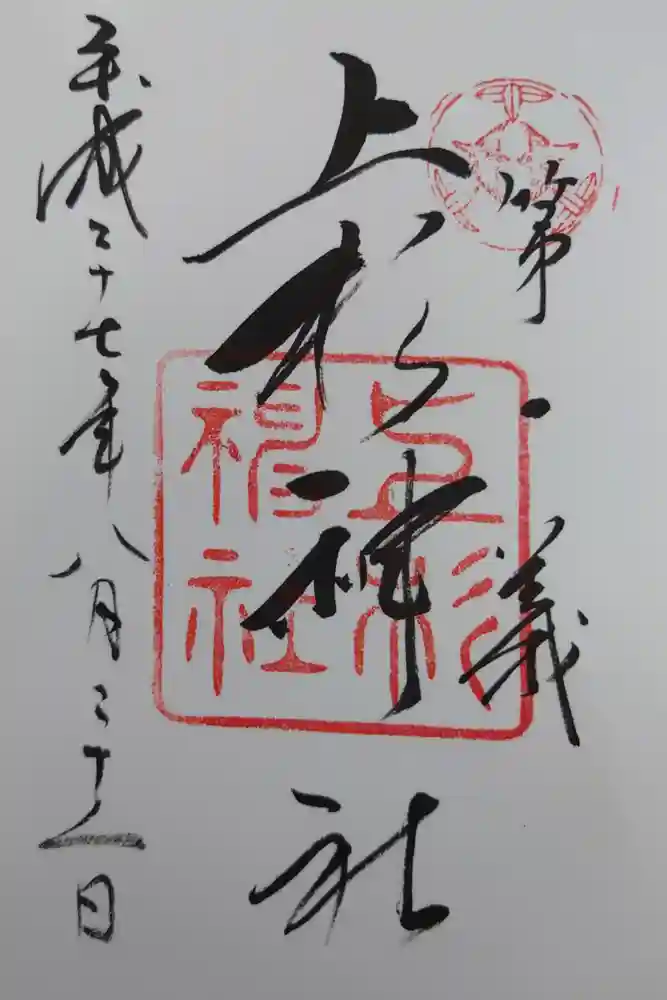 第一義
上杉神社
上杉神社
平成二十七年八月三十一日